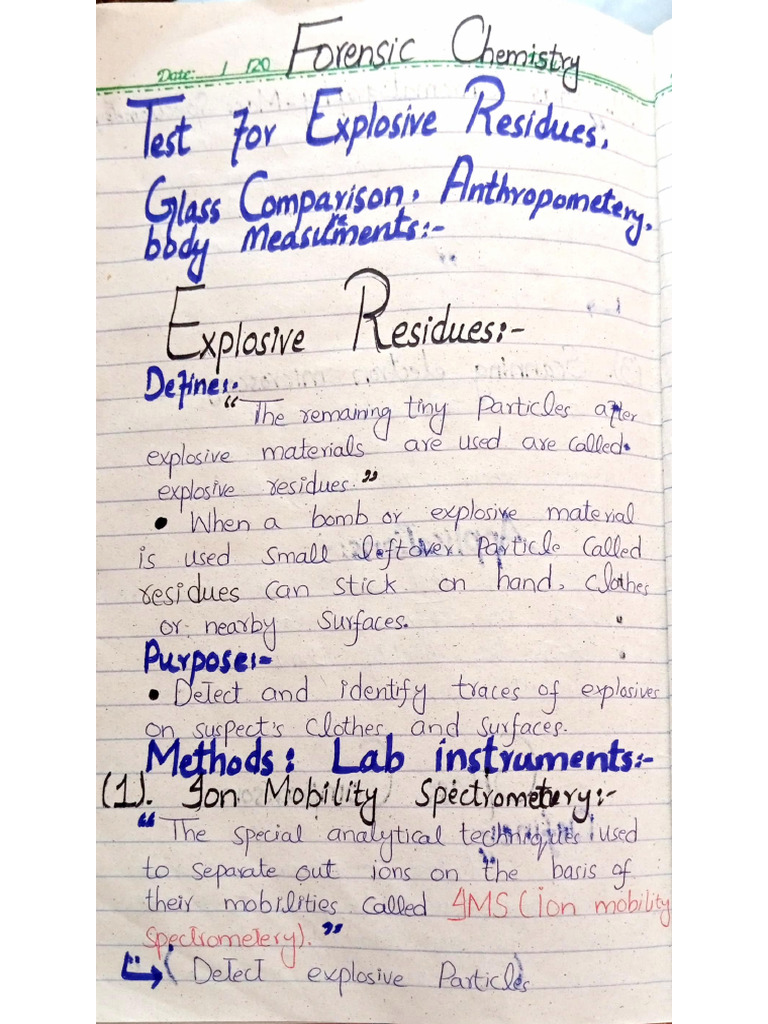 Forensic Chemistry
Date: / /20
Test for Explosive Residues,
Glass Comparison, Anthropometery,
body measurements:-
Explosive Residues:-
Define:-
“The remaining tiny particles after
explosive materials are used are called
explosive residues.”
• When a bomb or explosive material
is used small leftover particle called
residues can stick on hand, clothes
or nearby surfaces.
Purpose:-
• Detect and identify traces of explosives
on suspect's clothes and surfaces.
Methods: Lab instruments:-
(1). Ion Mobility Spectrometery:-
“The special analytical techniques used
to separate out ions on the basis of
their mobilities called IMS (ion mobility
spectrometery).”
↳ (Detect explosive Particles)